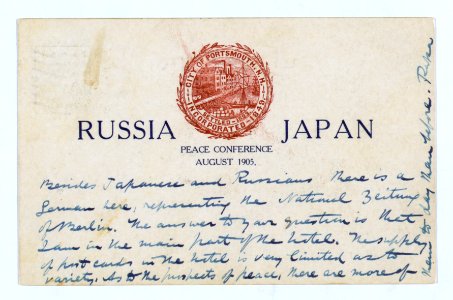 CITY OF PORTSMOUTH, N.H.
INCORPORATED 1849.
SETTLED 1623
RUSSIA JAPAN
PEACE CONFERENCE
AUGUST 1905.
Besides Japanese and Russians there is a
German here, representing the National Zeitung
of Berlin. The answer to your question is that
I am in the main part of the hotel. The supply
of post cards in the hotel is very limited as to
variety. As to the prospects of peace, there are more of
them to day than before.